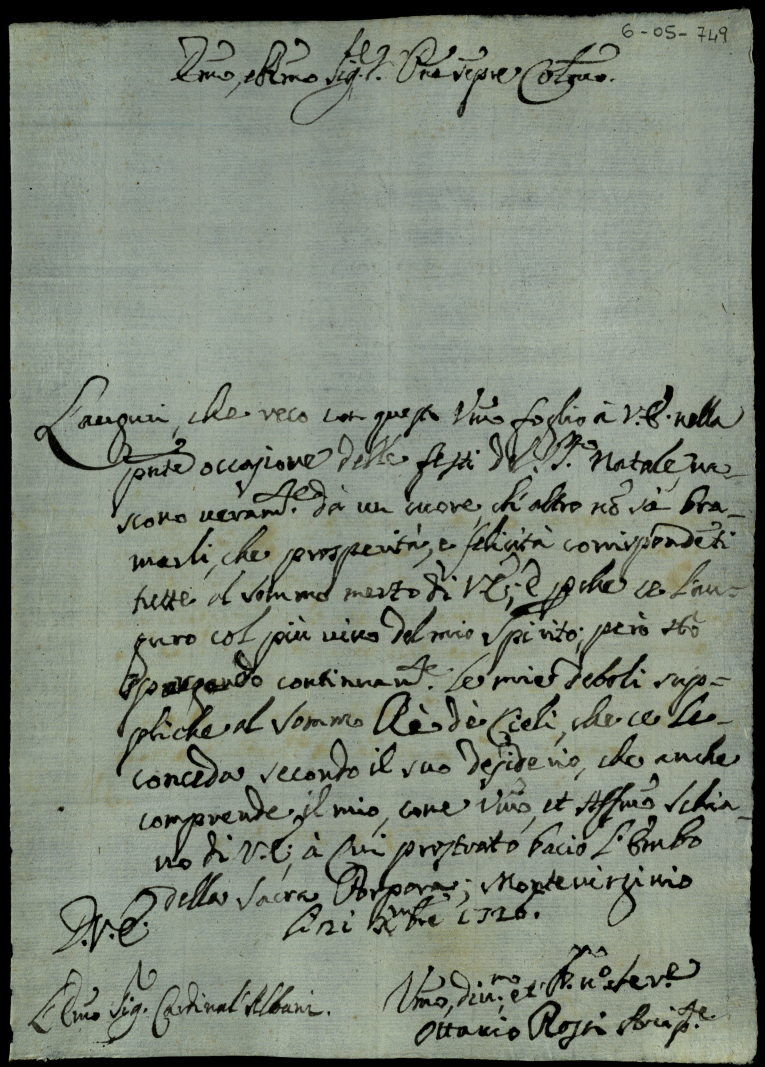 6-05-749
E.mo, e R.mo Sig.re P.ne sempre Col.mo
L'auguri, che reco con questo Um̃o foglio à V.E. nella
pn̄te occasione delle festi del S.S.mo Natale, na-
scono veram.te dà un cuore, ch'altro nõ sà bra-
marli, che prosperità, e felicità corrispondẽti
tutte al sommo merto di V.E; e perche ce l'au-
guro col più vivo del mio Spirito; però stò
porgendo continuam.te le mie deboli sup-
pliche al Sommo Rè dè Cieli, che ce le
conceda secondo il suo desiderio, che anche
comprende il mio, come Um̃o, et Aff.mo Schia-
vo di V.E; à Cui prostrato bacio l'
della Sacra Porpora; Montevirginio
li 21 Xmbre 1720.
D.V.E.
Um̃o, div.mo, et
E.mo Sig. Cardinal Albani.
Ottavio Rossi Arcip.te